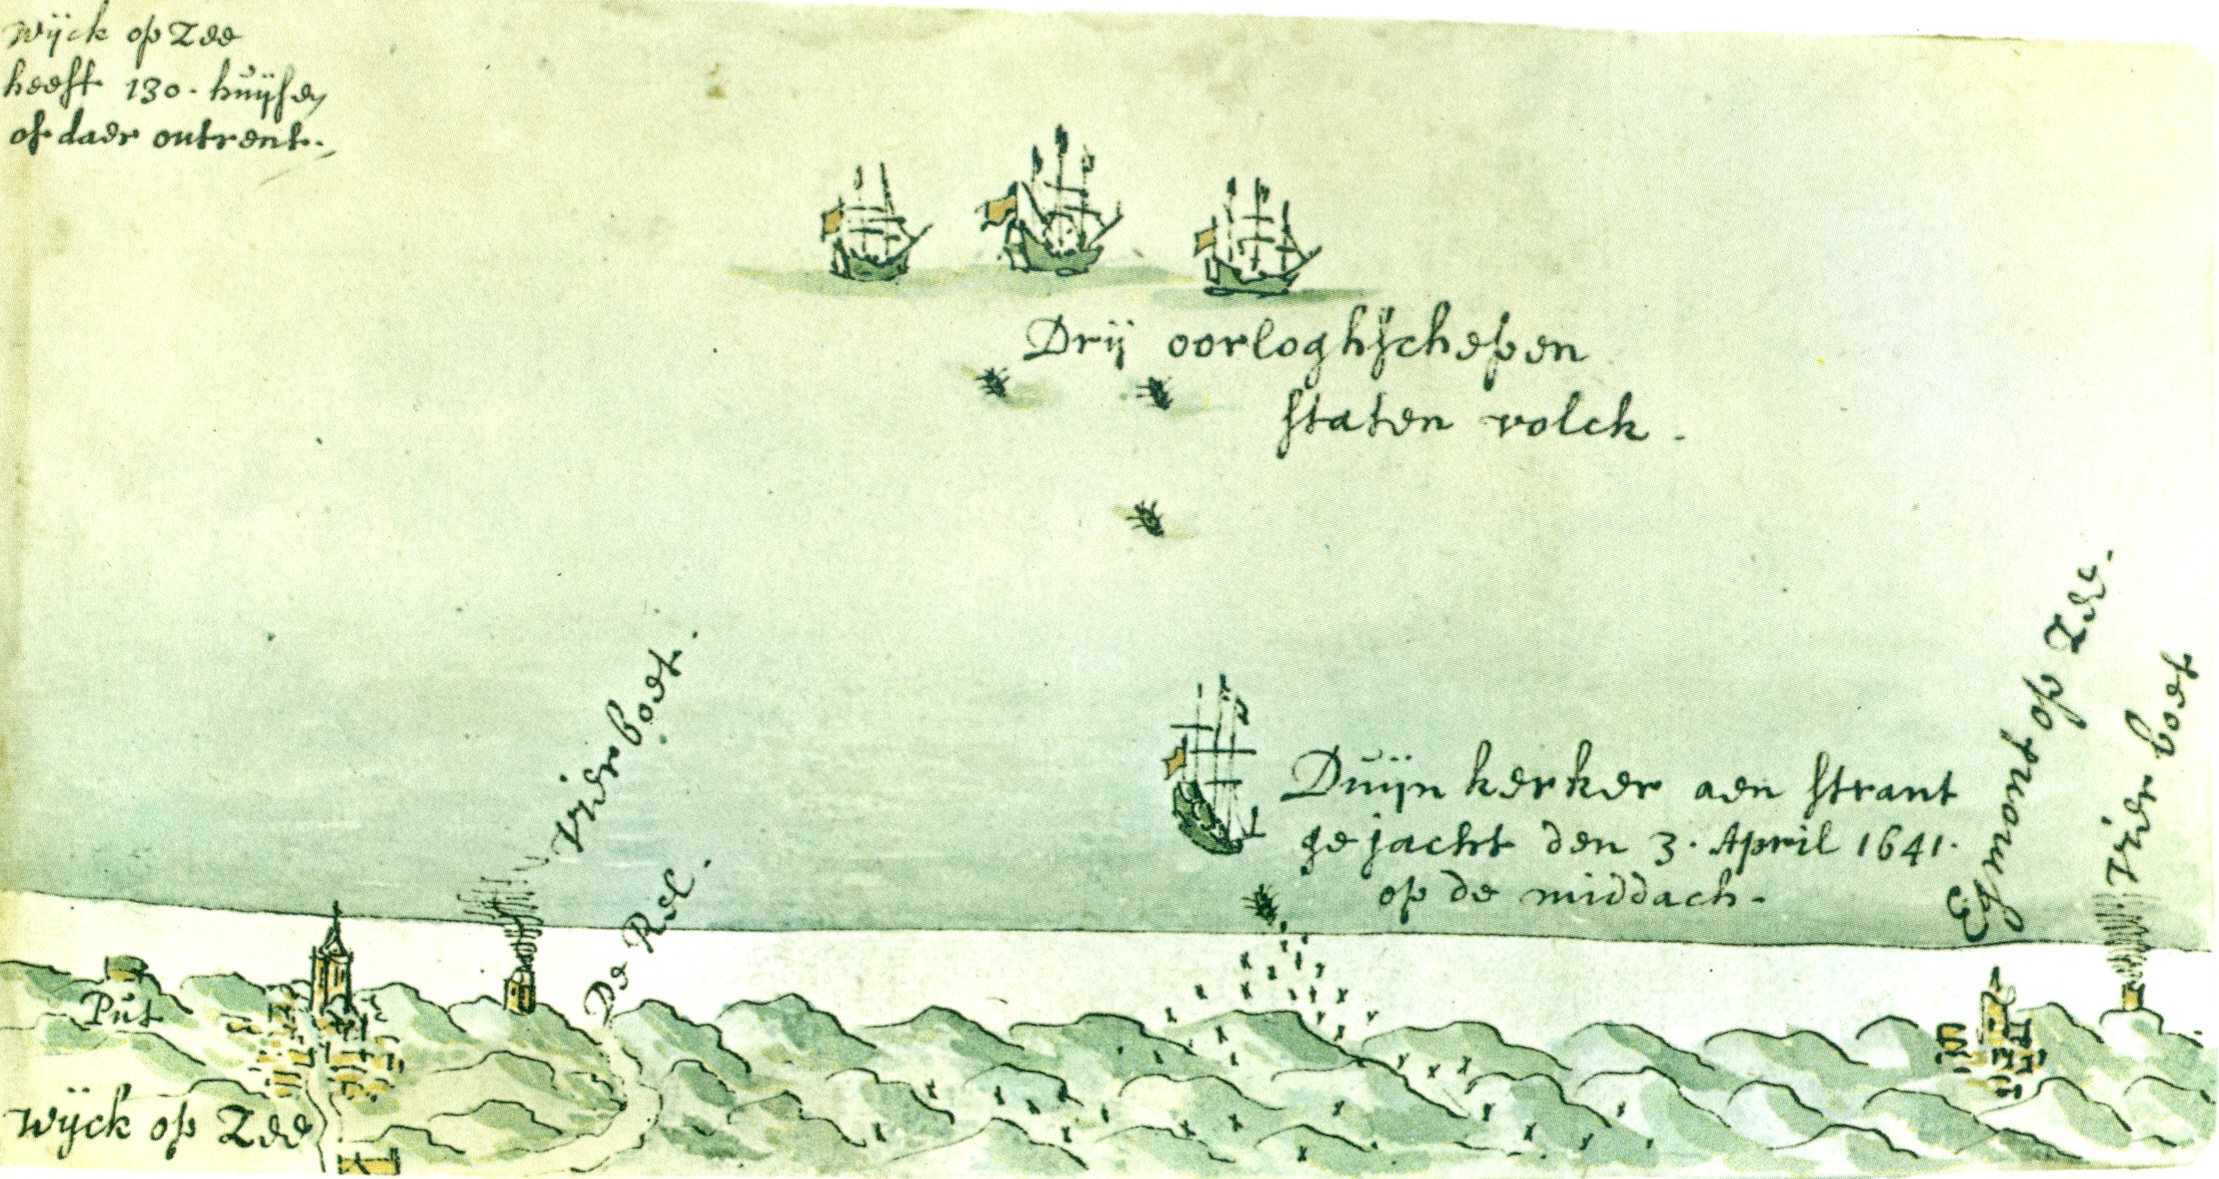 Wijck op Zee
heeft 130. huijsen
of daer ontrent.
Drij oorloghschepen
staten volck.
Vierboet.
De Rel.
Duijnkerker aen strant
gejacht den 3. April 1641.
op de middach.
Egmont op Zee.
Vier boet
Put
Wijck op Zee